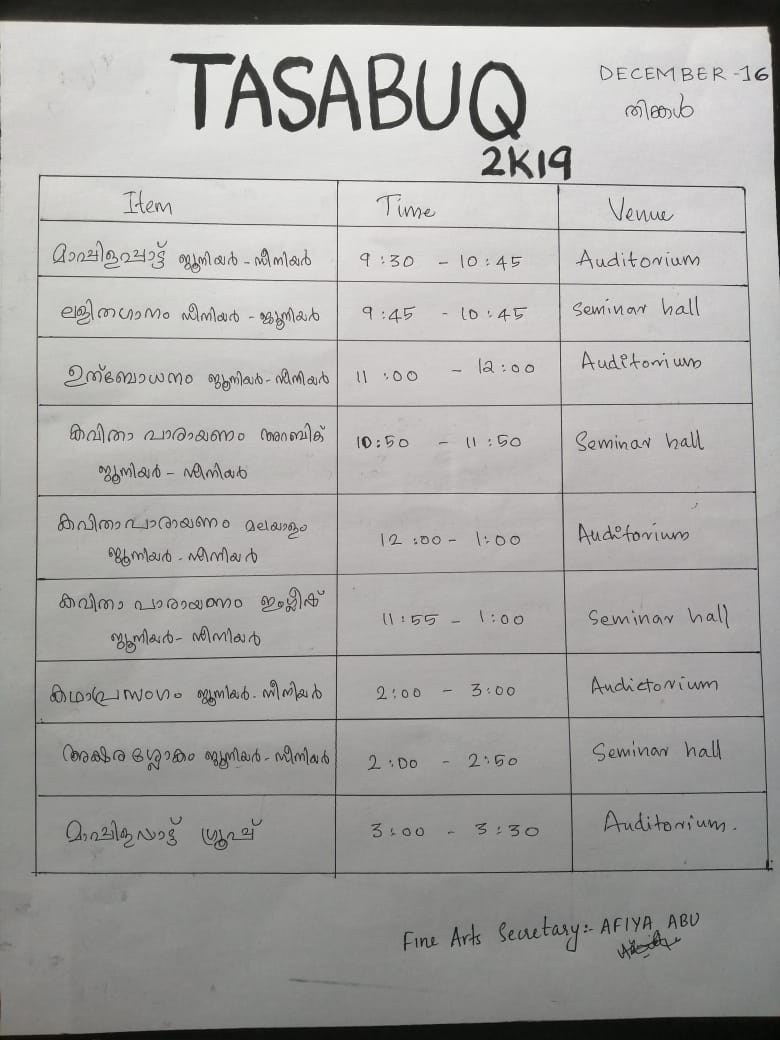 TASABUQ
2K19
DECEMBER -16
തിങ്കൾ
Item Time Venue
മാപ്പിളപ്പാട്ട് ജൂനിയർ - സീനിയർ 9:30 - 10:45 Auditorium
ലളിതഗാനം സീനിയർ - ജൂനിയർ 9:45 - 10:45 Seminar hall
ഉത്ബോധനം ജൂനിയർ - സീനിയർ 11:00 - 12:00 Auditorium
കവിതാ പാരായണം അറബിക് 10:50 - 11:50 Seminar hall
ജൂനിയർ - സീനിയർ
കവിതാപാരായണം മലയാളം 12:00 - 1:00 Auditorium
ജൂനിയർ - സീനിയർ
കവിതാ പാരായണം ഇംഗ്ലീഷ് 11:55 - 1:00 Seminar hall
ജൂനിയർ - സീനിയർ
കഥാപ്രസംഗം ജൂനിയർ - സീനിയർ 2:00 - 3:00 Audietorium
അക്ഷര ശ്ലോകം ജൂനിയർ - സീനിയർ 2:00 - 2:50 Seminar hall
മാപ്പിളപാട്ട് ഗ്രൂപ്പ് 3:00 - 3:30 Auditorium.
Fine Arts Secretary:- AFIYA ABU